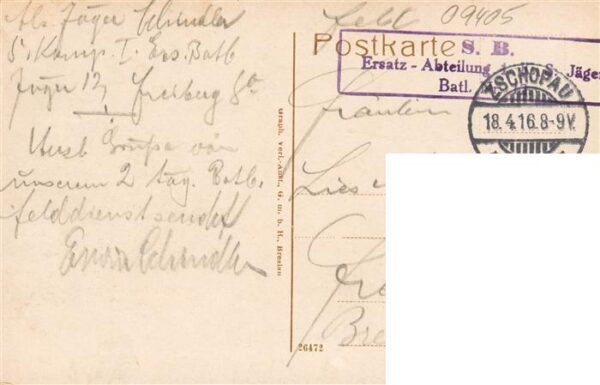 Abs. Jäger Schindler
5. Komp. I. Ers. Batl.
Jäger 12, Freiberg Sa
Herzl. Grüße von
unserem 2 täg. Batl.
felddienst sendet
Erwin Schindler
Graph. Verl.-Anst., G. m. b. H., Breslau
26472
Feld
09405
Postkarte
S. B.
Ersatz - Abteilung
S. Jäger
Batl.
ZSCHOPAU
18.4.16.8-9V.
Fräulein
Lies
Bre